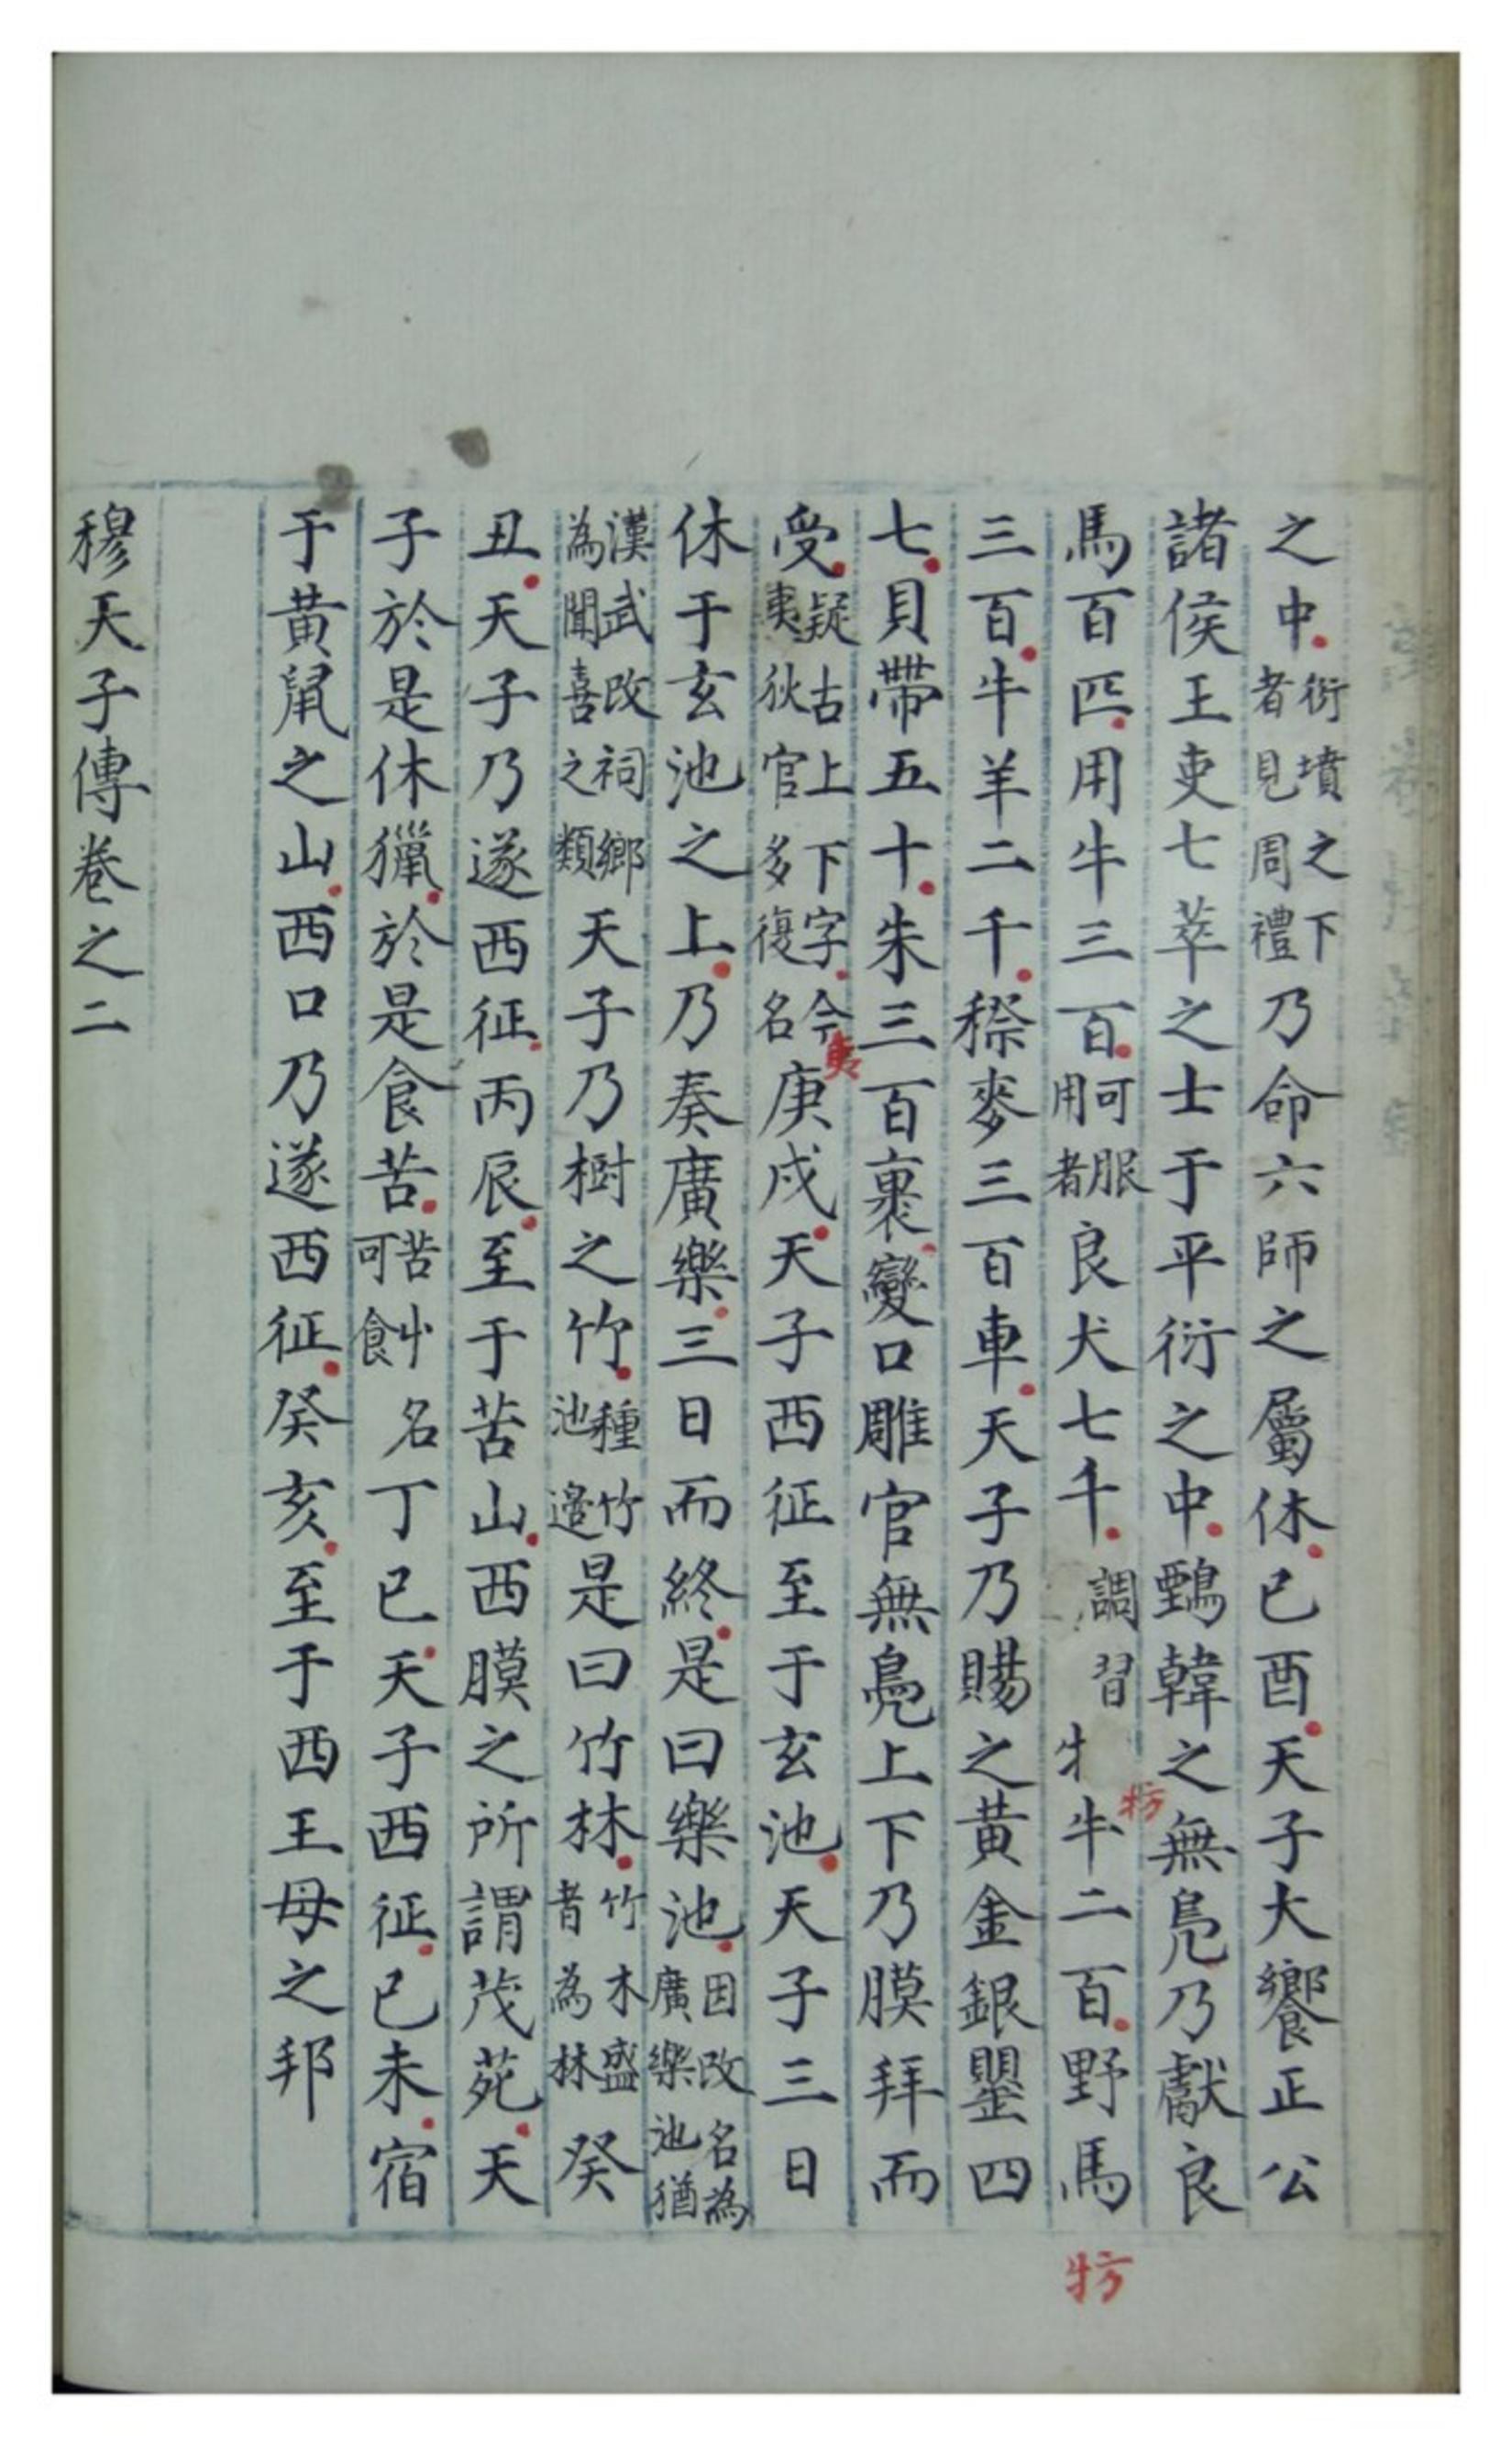 之中衍墳之下者見周禮乃命六師之屬休已酉天子大饗正公
諸侯王吏七萃之士于平衍之中鄄韓之無鳧乃獻良
馬百匹用牛三百可服用者良犬七千調習牜牛二百野馬
牥
三百牛羊二千穄麥三百車天子乃賜之黃金銀罌四
七貝帶五十朱三百裹變口雕官無鳧上下乃膜拜而
受疑古上下字今夷狄官多復名庚戌天子西征至于玄池天子三日
夷
休于玄池之上乃奏廣樂三日而終是曰樂池因改名為廣樂池猶
漢武改祠鄉為聞喜之類天子乃樹之竹種竹池邉是曰竹林竹木盛者為林癸
丑天子乃遂西征丙辰至于苦山西膜之所謂茂苑天
子於是休獵於是食苦苦艸名可食丁已天子西征已未宿
于黃鼠之山西口乃遂西征癸亥至于西王母之邦
穆天子傳卷之二
牥